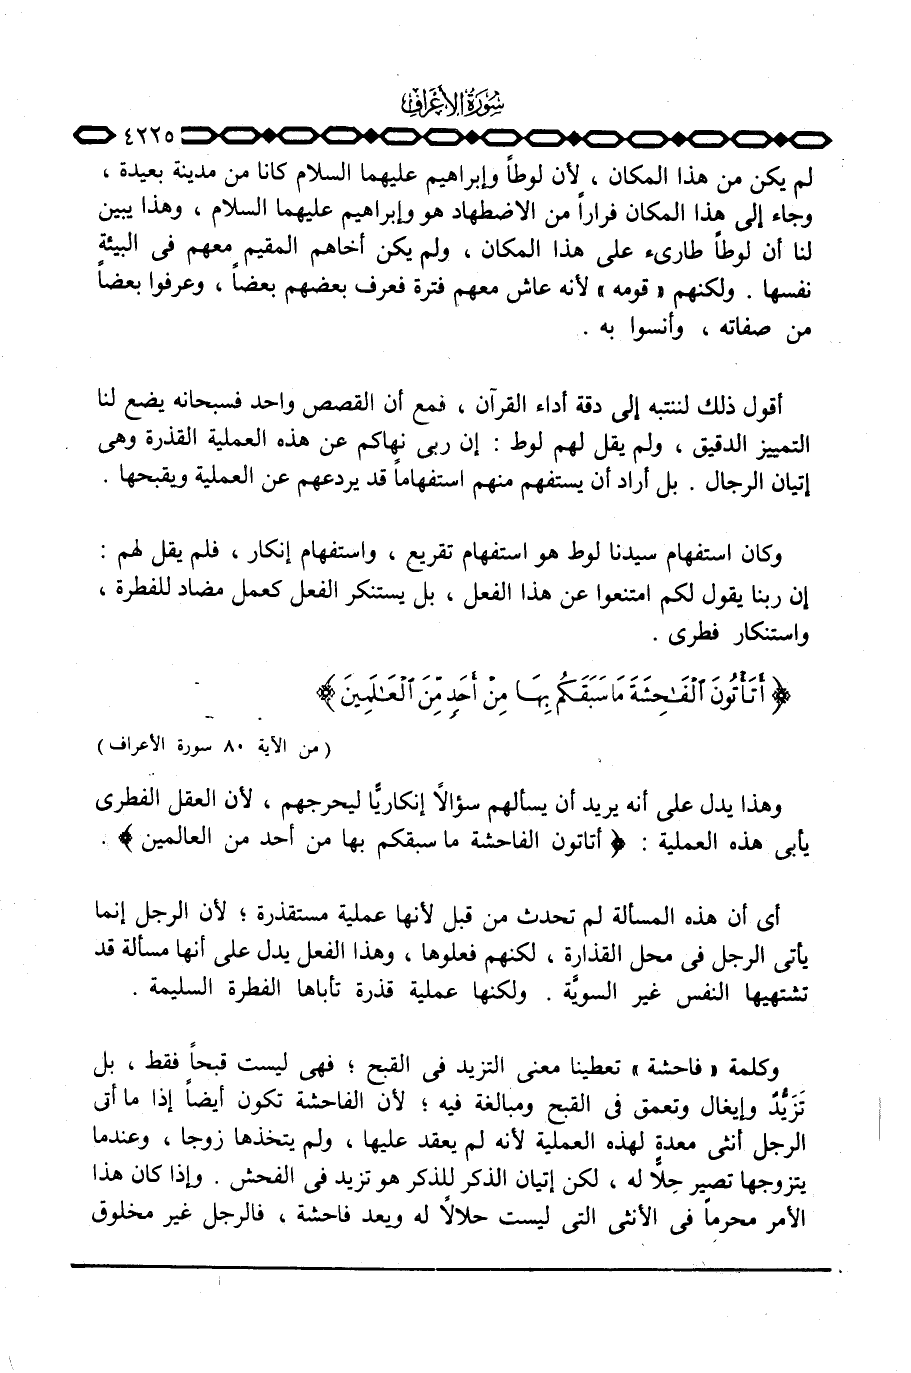 سورة الأعراف
٤٢٢٥
لم يكن من هذا المكان ، لأن لوطاً وإبراهيم عليهما السلام كانا من مدينة بعيدة ،
وجاء إلى هذا المكان فراراً من الاضطهاد هو وإبراهيم عليهما السلام ، وهذا يبين
لنا أن لوطاً طارىء على هذا المكان ، ولم يكن أخاهم المقيم معهم فى البيئة
نفسها . ولكنهم « قومه » لأنه عاش معهم فترة فعرف بعضهم بعضاً ، وعرفوا بعضاً
من صفاته ، وأنسوا به .
أقول ذلك لننتبه إلى دقة أداء القرآن ، فمع أن القصص واحد فسبحانه يضع لنا
التمييز الدقيق ، ولم يقل لهم لوط : إن ربى نهاكم عن هذه العملية القذرة وهى
إتيان الرجال . بل أراد أن يستفهم منهم استفهاماً قد يردعهم عن العملية ويقبحها .
وكان استفهام سيدنا لوط هو استفهام تقريع ، واستفهام إنكار ، فلم يقل لهم :
إن ربنا يقول لكم امتنعوا عن هذا الفعل ، بل يستنكر الفعل كعمل مضاد للفطرة ،
واستنكار فطرى .
﴿ أَتَأْتُونَ ٱلْفَـٰحِشَةَ مَا سَبَقَكُم بِهَا مِنْ أَحَدٍ مِّنَ ٱلْعَـٰلَمِينَ ﴾
( من الآية ٨٠ سورة الأعراف )
وهذا يدل على أنه يريد أن يسألهم سؤالًا إنكاريًّا ليحرجهم ، لأن العقل الفطرى
يأبى هذه العملية : ﴿ أتاتون الفاحشة ما سبقكم بها من أحد من العالمين ﴾ .
أى أن هذه المسألة لم تحدث من قبل لأنها عملية مستقذرة ؛ لأن الرجل إنما
يأتى الرجل فى محل القذارة ، لكنهم فعلوها ، وهذا الفعل يدل على أنها مسألة قد
تشتهيها النفس غير السويَّة . ولكنها عملية قذرة تأباها الفطرة السليمة .
وكلمة « فاحشة » تعطينا معنى التزيد فى القبح ؛ فهى ليست قبحاً فقط ، بل
تَزَيُّدٌ وإيغال وتعمق فى القبح ومبالغة فيه ؛ لأن الفاحشة تكون أيضاً إذا ما أتى
الرجل أنثى معدة لهذه العملية لأنه لم يعقد عليها ، ولم يتخذها زوجا ، وعندما
يتزوجها تصير حِلًّا له ، لكن إتيان الذكر للذكر هو تزيد فى الفحش . وإذا كان هذا
الأمر محرماً فى الأنثى التى ليست حلالًا له ويعد فاحشة ، فالرجل غير مخلوق